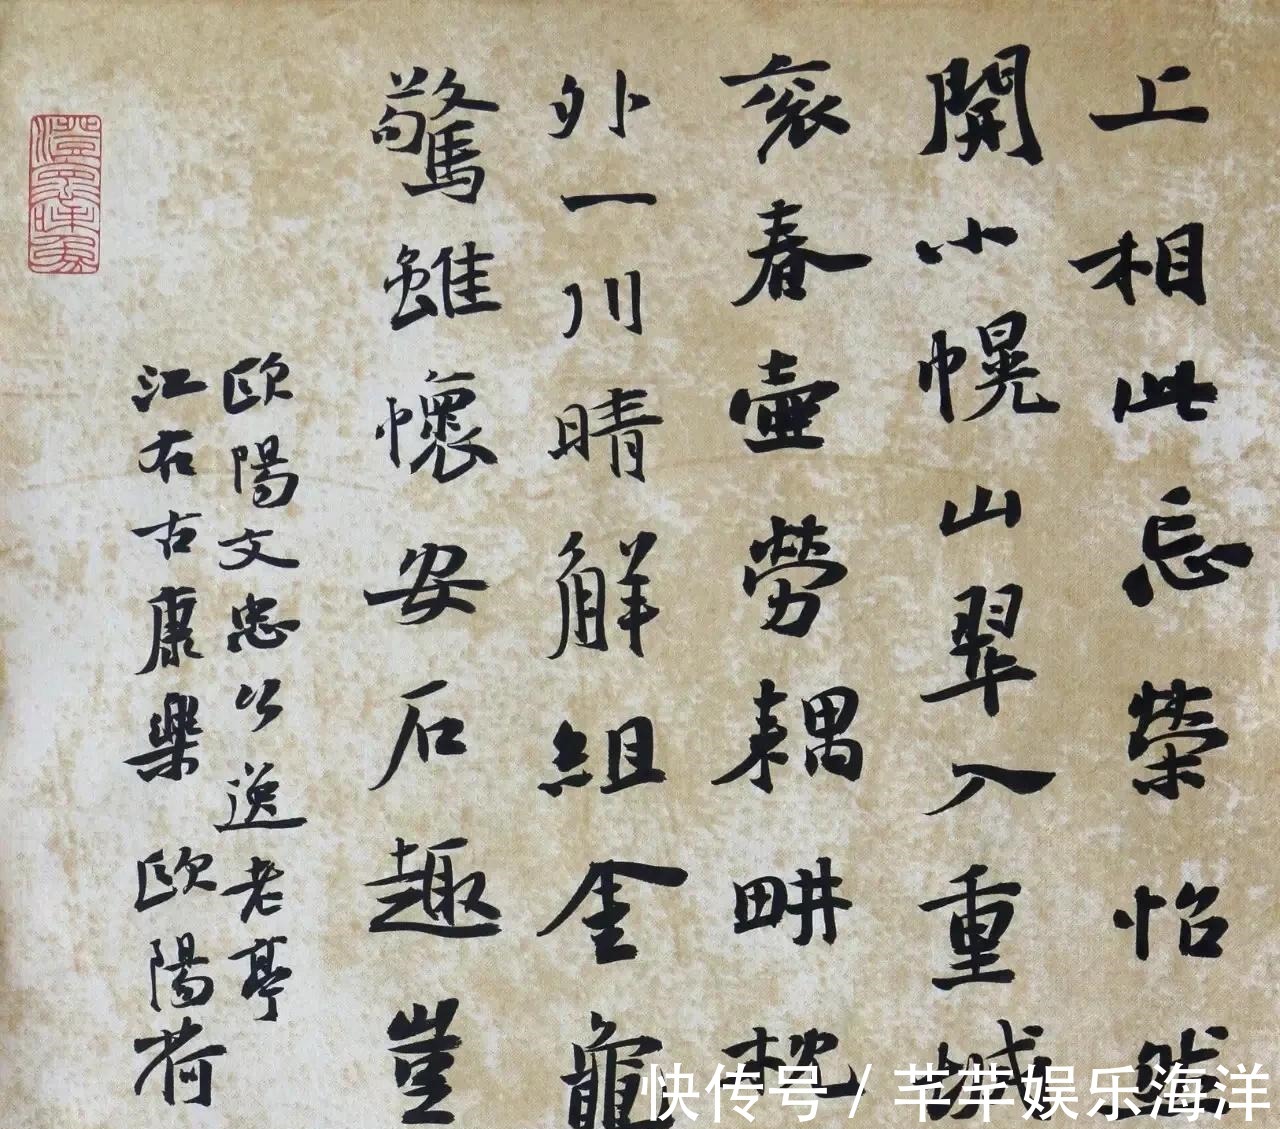 上相此忘榮怡然
開小幌山翠入重城
衮春壺勞耦畊枕
外一川晴解組金龜
驚雖懷安石趣豈
歐陽文忠公逸老亭
江右古康樂歐陽荷
快传号 / 芊芊娱乐海洋